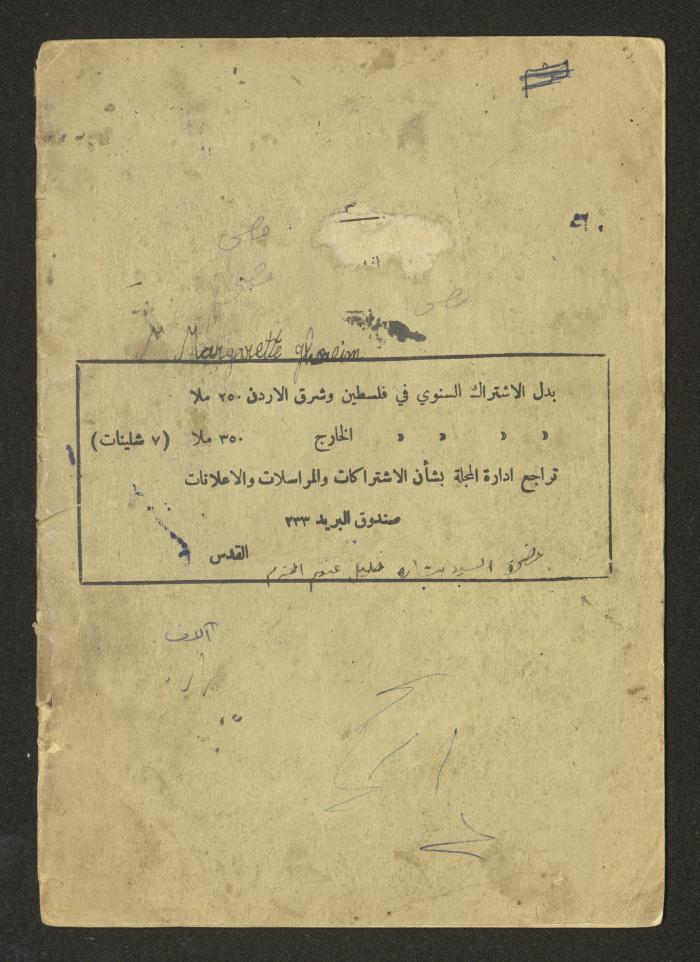 Margarette Ghneim
بدل الاشتراك السنوي في فلسطين وشرق الاردن ٢٥٠ ملا
» » » » الخارج ٣٥٠ ملا (٧ شلينات)
تراجع ادارة المجلة بشأن الاشتراكات والمراسلات والاعلانات
صندوق البريد ٢٣٣
القدس
حضرة السيد بشاره خليل غنيم المحترم
آلاف